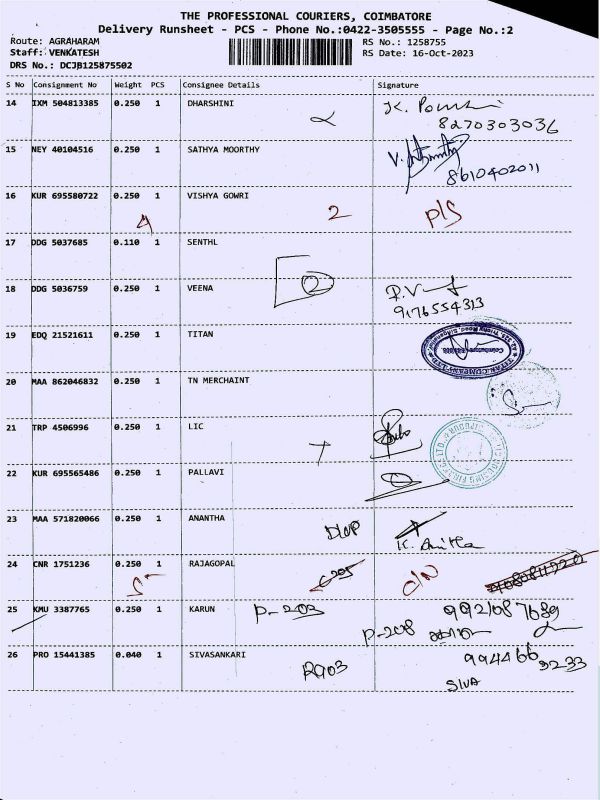 THE PROFESSIONAL COURIERS, COIMBATORE
Delivery Runsheet - PCS - Phone No.:0422-3505555 - Page No.:2
Route: AGRAHARAM RS No.: 1258755
Staff: VENKATESH RS Date: 16-Oct-2023
DRS No.: DCJB125875502
S No Consignment No Weight PCS Consignee Details Signature
14 IXM 504813385 0.250 1 DHARSHINI
8270303036
15 NEY 40104516 0.250 1 SATHYA MOORTHY
8610402011
16 KUR 695580722 0.250 1 VISHYA GOWRI
2 P/S
17 DDG 5037685 0.110 1 SENTHL
18 DDG 5036759 0.250 1 VEENA
9176554313
19 EDQ 21521611 0.250 1 TITAN
20 MAA 862046832 0.250 1 TN MERCHAINT
21 TRP 4506996 0.250 1 LIC
22 KUR 695565486 0.250 1 PALLAVI
23 MAA 571820066 0.250 1 ANANTHA
24 CNR 1751236 0.250 1 RAJAGOPAL
25 KMU 3387765 0.250 1 KARUN P-203 9921087689
P-208
26 PRO 15441385 0.040 1 SIVASANKARI
R903 994466 3233
SIVA